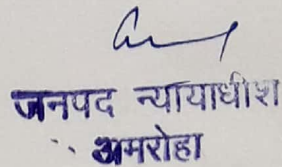 जनपद न्यायाधीश
अमरोहा